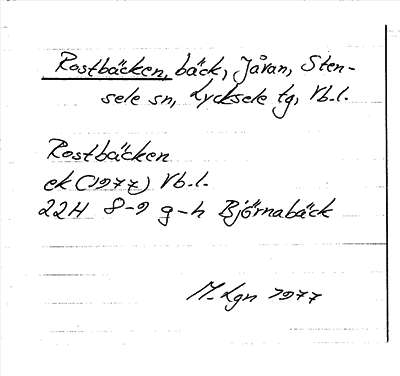 Rostbäcken, bäck, Jåran, Sten-
sele sn, Lycksele tg, Vb.l.
Rostbäcken
ek (1977) Vb.l.
22H 8-9 g-h Björnabäck
M. Lgn 1977